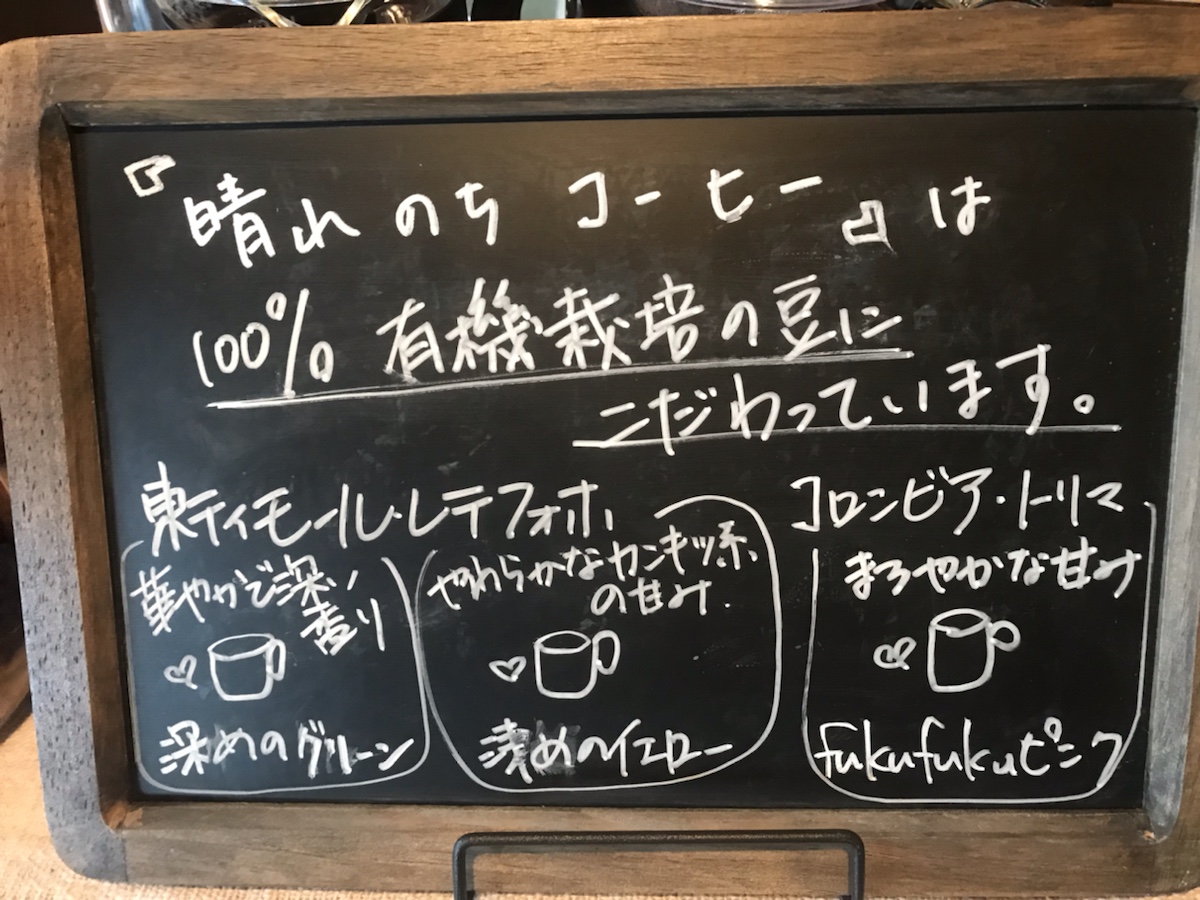 『晴れのちコーヒー』は
100% 有機栽培の豆に
こだわっています。
東ティモール・レテフォホ
華やかで深い
香り
深めのグリーン
やわらかなカンキツ系
の甘み.
浅めのイエロー
コロンビア・トリマ
まろやかな甘み
fukufukuピンク